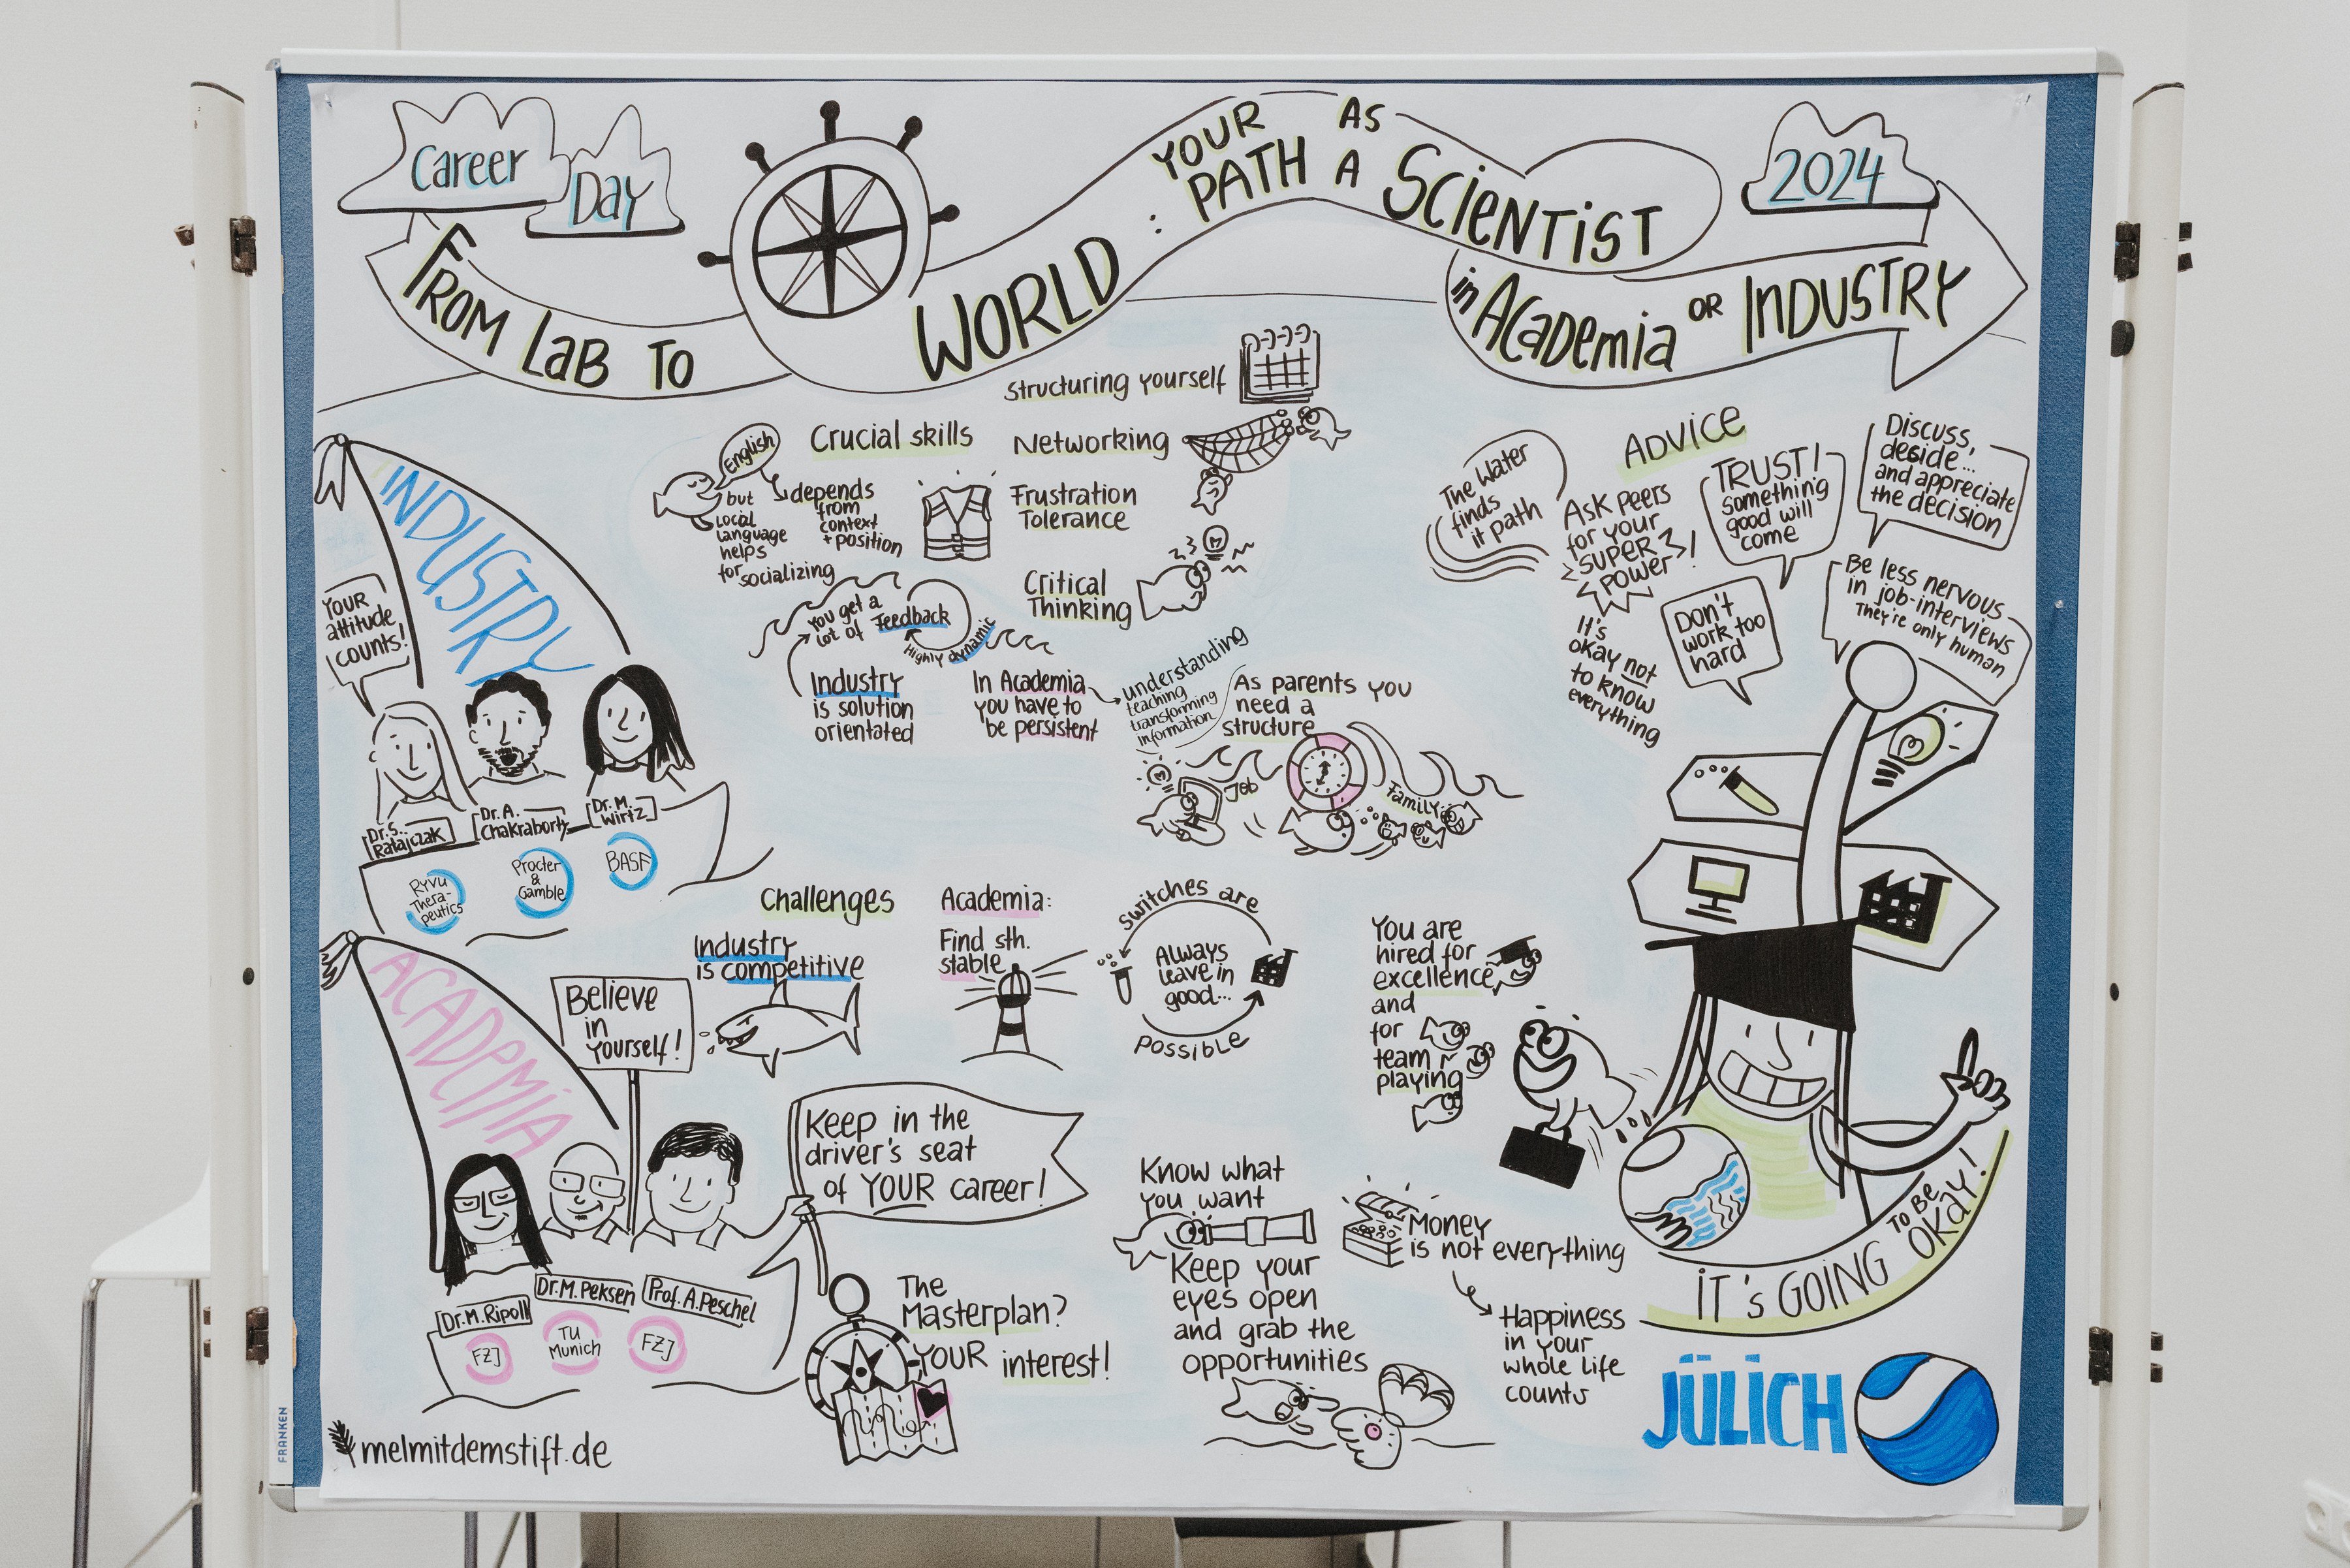 Career
Day
2024
FROM LAB TO
WORLD :
YOUR
PATH
AS
A
SCIENTIST
in ACADEMIA OR INDUSTRY
INDUSTRY
YOUR
attitude
counts!
Dr. S.
Ratajczak
Dr. A.
Chakraborty
Dr. M.
Wirtz
Ryvu
Thera-
peutics
Procter
&
Gamble
BASF
Crucial skills
English
but
Local
language
helps
for socializing
depends
from
context
+ position
Structuring yourself
Networking
Frustration
Tolerance
Critical
Thinking
You get a
lot of Feedback
Highly dynamic
Industry
is solution
orientated
In Academia
you have to
be persistent
understanding
teaching
transforming
information
As parents you
need a
structure
Job
Family
ADVICE
The Water
finds
it path
Ask peers
for your
SUPER
POWER!
TRUST!
something
good will
come
Discuss,
decide...
and appreciate
the decision
It's
okay not
to know
everything
DON'T
work too
hard
Be less nervous
in job-interviews
They're only human
Challenges
Industry
is competitive
Academia:
Find sth.
stable
switches are
Always
leave in
good...
possible
You are
hired for
excellence
and
for
team
playing
ACADEMIA
Believe
in
yourself!
Keep in the
driver's seat
of YOUR career!
Dr. M. Ripoll
Dr. M. Peksen
Prof. A. Peschel
FZJ
TU
Munich
FZJ
The
Masterplan?
YOUR interest!
Know what
you want
Keep your
eyes open
and grab the
opportunities
Money
is not everything
Happiness
in your
whole life
counts
IT's GOING TO BE OKAY!
JÜLICH
melmitdemstift.de
FRANKEN